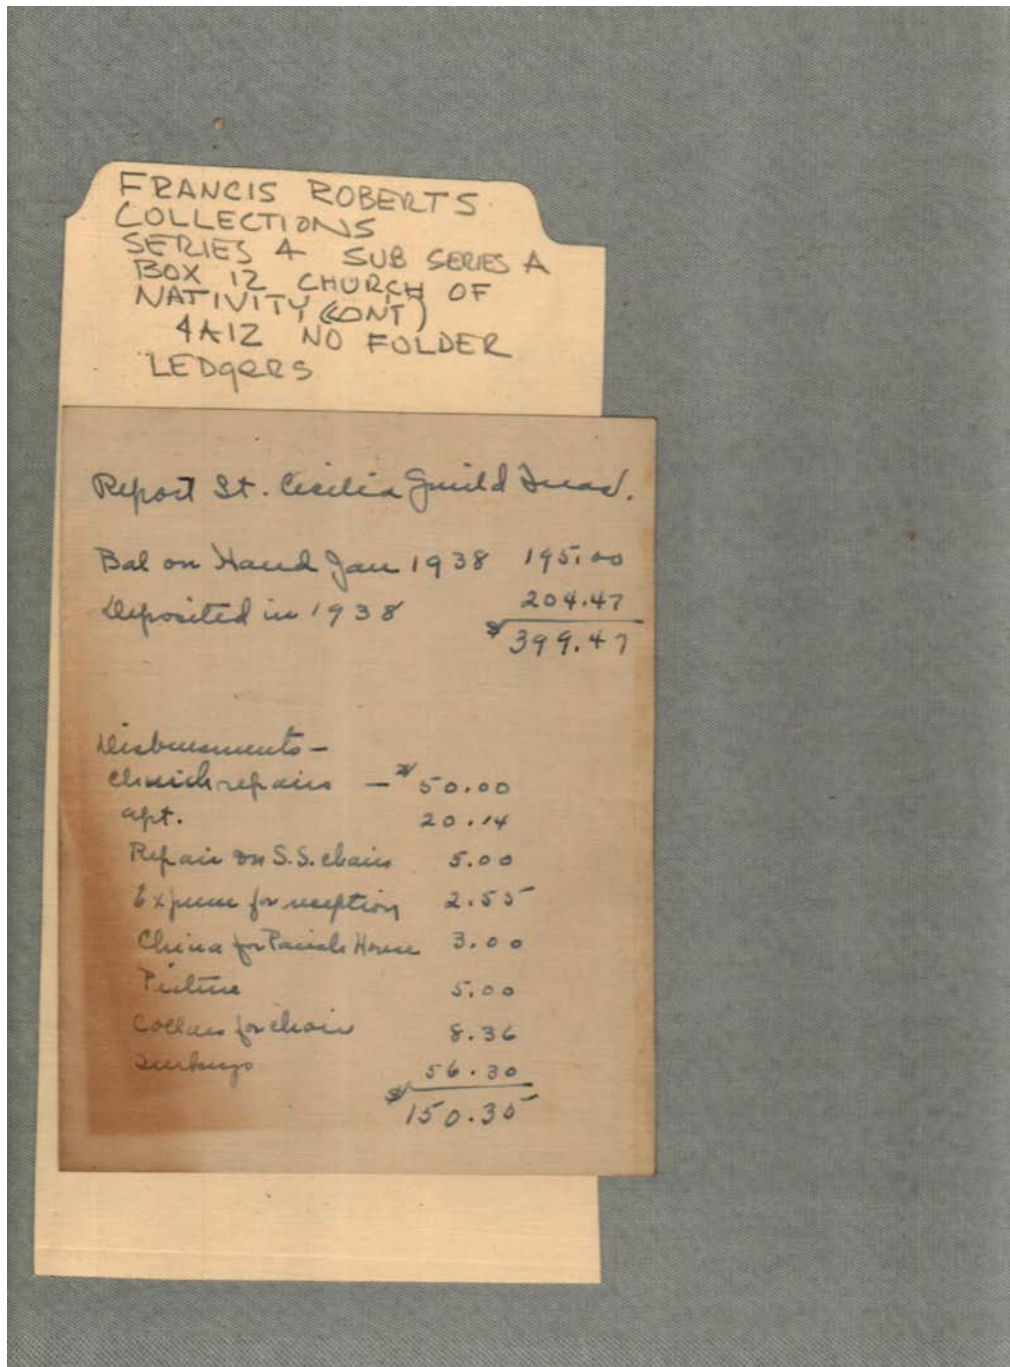 FRANCIS ROBERTS
COLLECTIONS
SERIES 4 SUB SERIES A
BOX 12 CHURCH OF
NATIVITY (CONT)
4A12 NO FOLDER
LEDgERS
Report St. Cecilia Guild Treas.
Bal on Hand Jan 1938 195.00
Deposited in 1938 204.47
$399.47
Disbursements –
Church repairs – $50.00
apt. 20.14
Repair on S.S. chairs 5.00
Expense for reception 2.55
China for Parish House 3.00
Picture 5.00
Collars for choir 8.36
Turkeys 56.30
$150.35